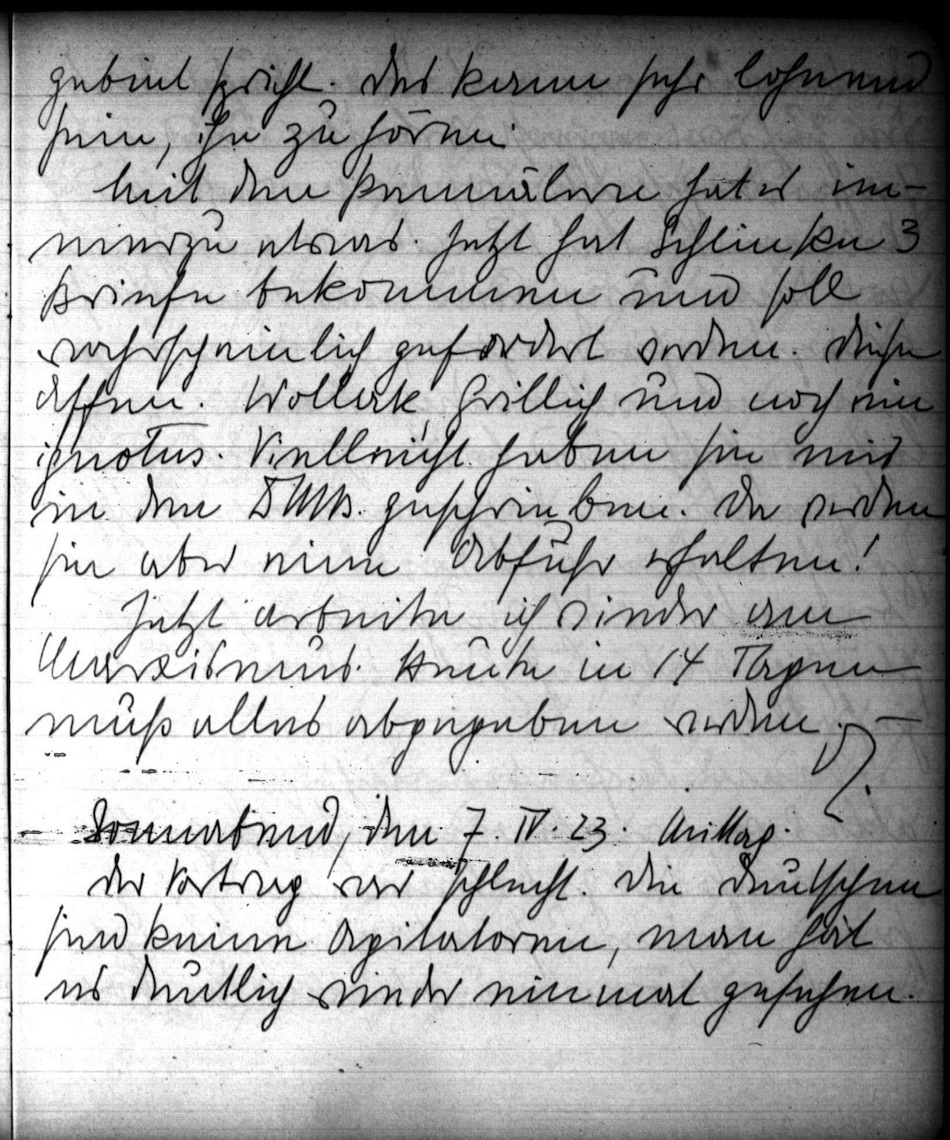 gebiet spricht. Das kann sehr lohnend
sein, ihn zu hören.
Mit den Pennälern hat es im-
merzu etwas. Jetzt hat Schlinke 3
Briefe bekommen und soll
wahrscheinlich gefordert werden. Diese
Affen. Grillich und noch ein
ignotus. Vielleicht haben sie mir
in dem geschrieben. Da werden
sie aber eine Abfuhr erhalten!
Jetzt arbeite ich wieder am
Marxismus. Heute in 14 Tagen
muß alles abgegeben werden. –
Sonnabend, den 7. IV. 23. Mittag.
Der Vortrag war schlecht. Die Deutschen
sind keine Agitatoren, man hat
es deutlich wieder einmal gesehen.